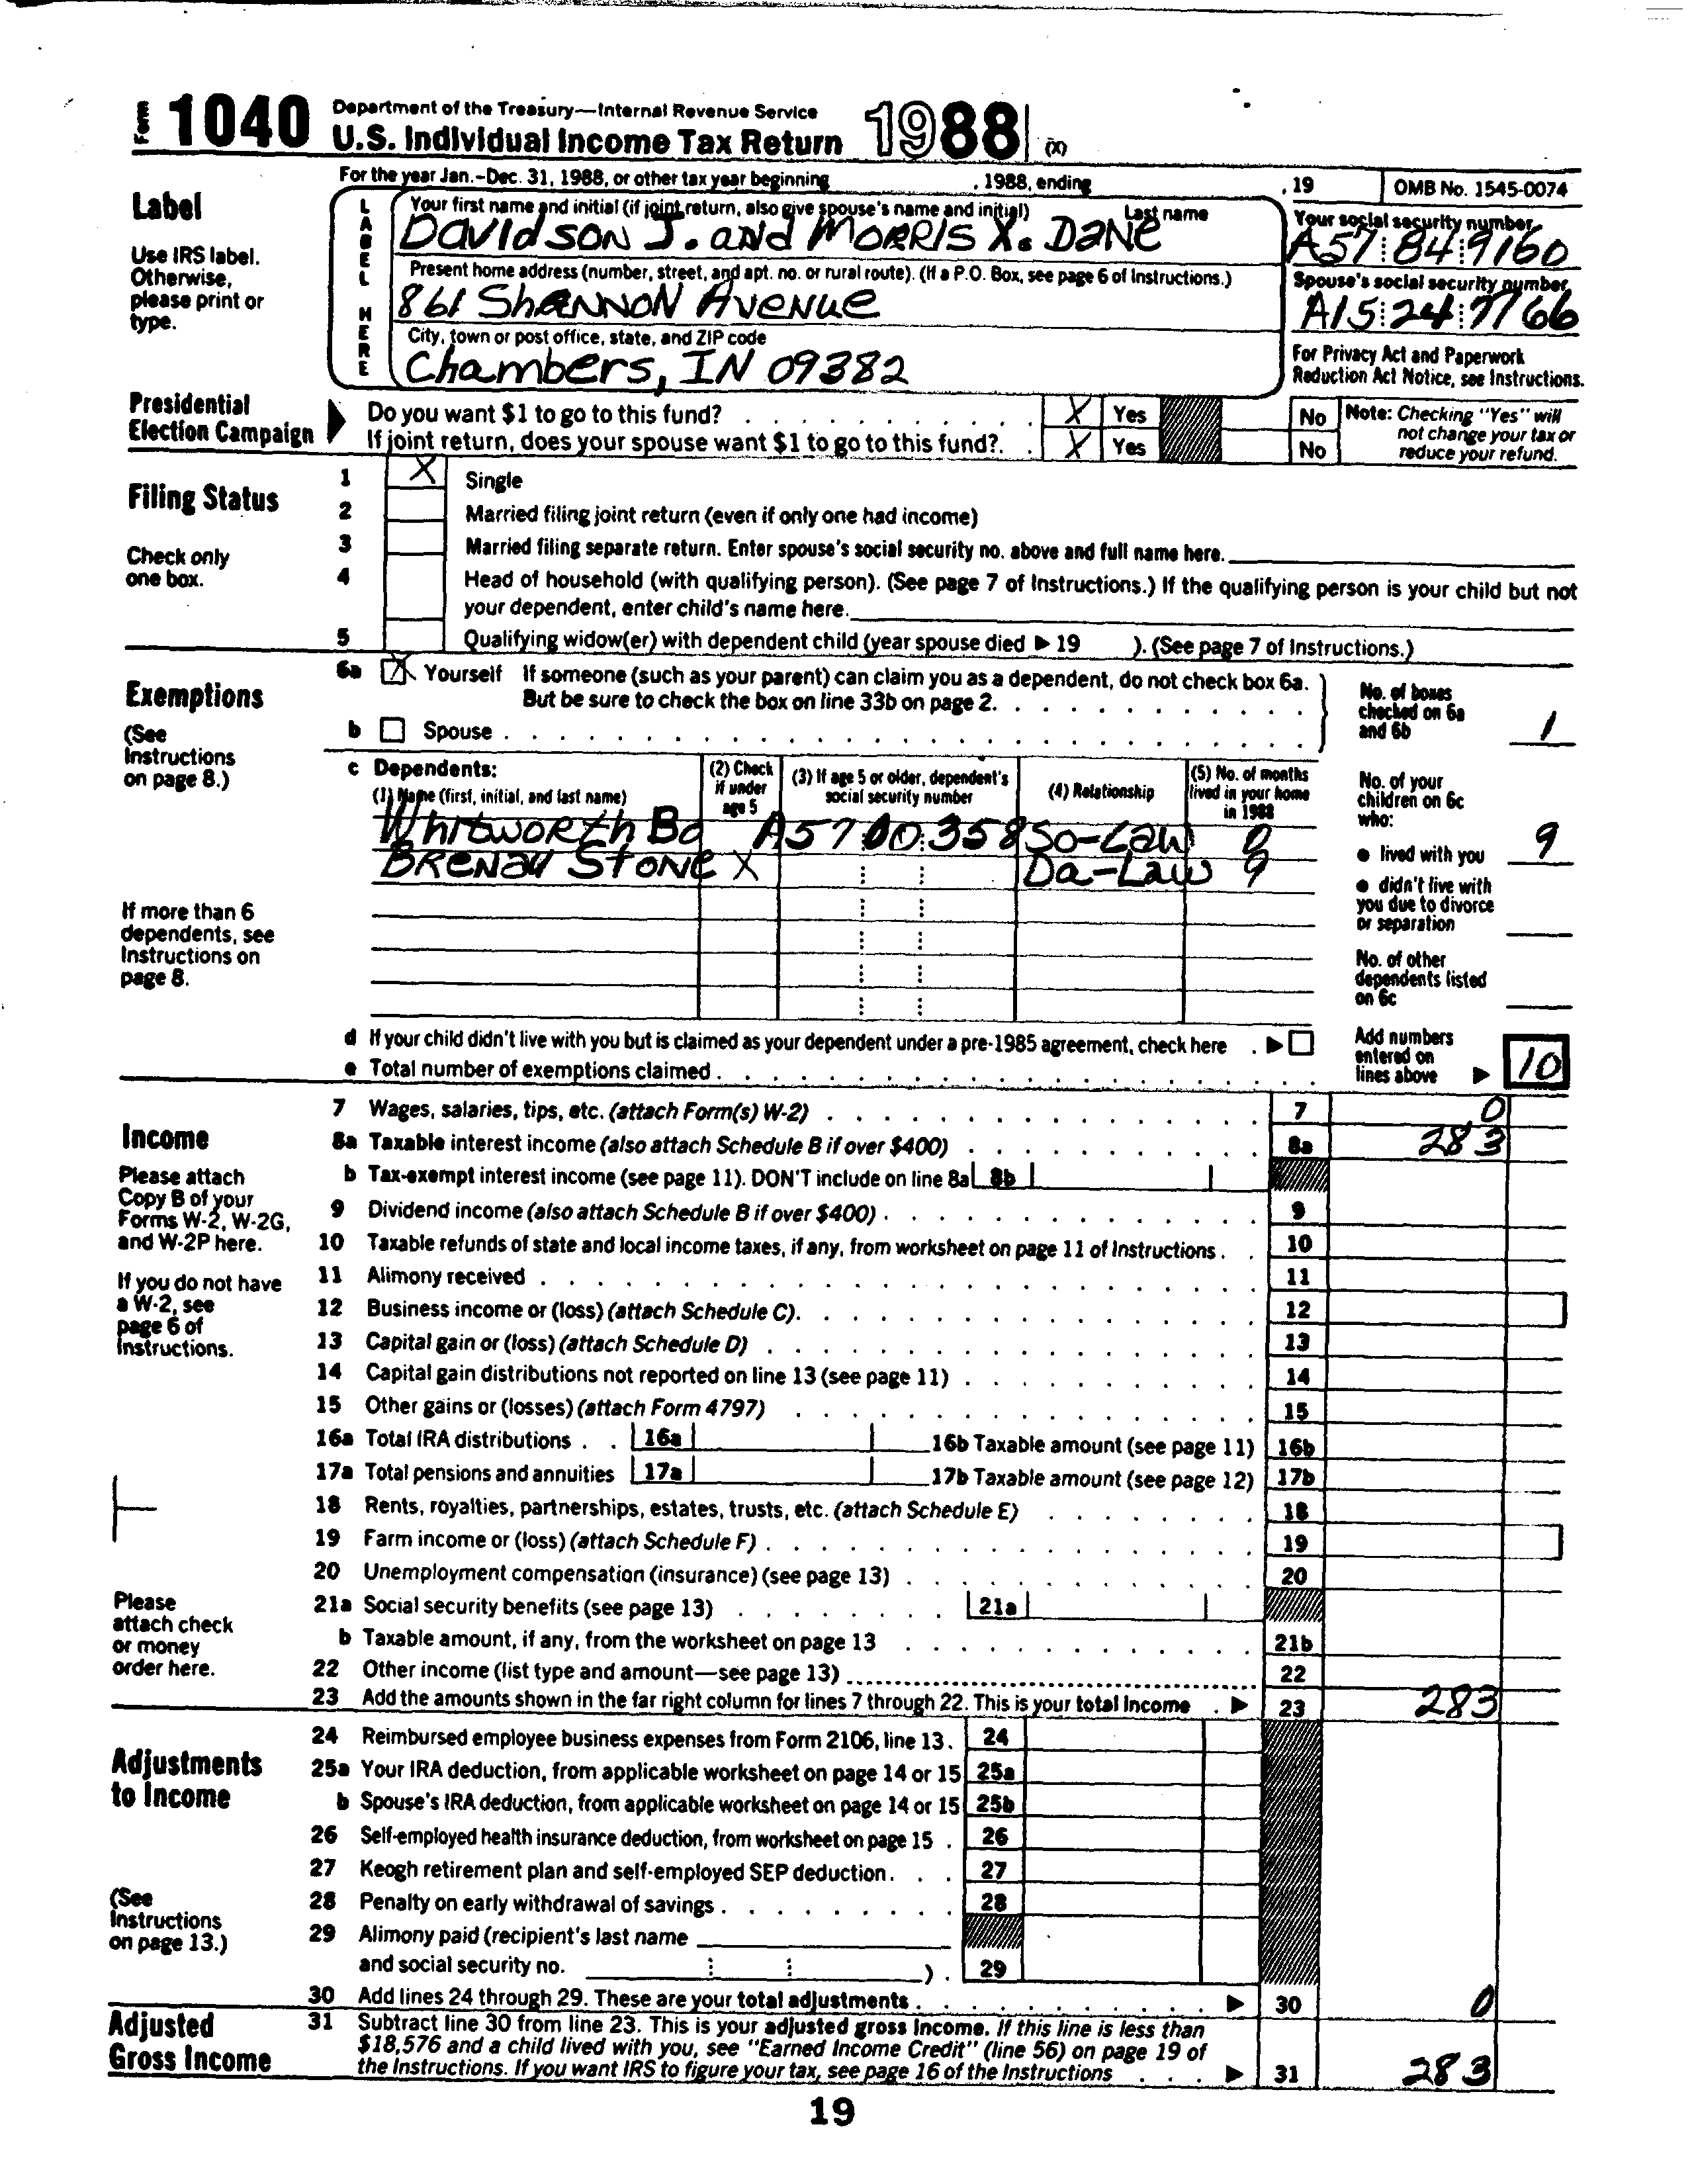 Form 1040 Department of the Treasury—Internal Revenue Service
U.S. Individual Income Tax Return 1988 (X)
For the year Jan.-Dec. 31, 1988, or other tax year beginning , 1988, ending , 19 OMB No. 1545-0074
Label
Use IRS label. Otherwise, please print or type.
LABEL HERE
Your first name and initial (if joint return, also give spouse's name and initial) Last name
Davidson J. and Morris X. Dane
Your social security number
A57 84 9160
Present home address (number, street, and apt. no. or rural route). (If a P.O. Box, see page 6 of Instructions.)
861 Shannon Avenue
Spouse's social security number
A15 24 7766
City, town or post office, state, and ZIP code
Chambers, IN 09382
For Privacy Act and Paperwork Reduction Act Notice, see Instructions.
Presidential Election Campaign
Do you want $1 to go to this fund? X Yes No
If joint return, does your spouse want $1 to go to this fund? X Yes No
Note: Checking "Yes" will not change your tax or reduce your refund.
Filing Status
Check only one box.
1 X Single
2 Married filing joint return (even if only one had income)
3 Married filing separate return. Enter spouse's social security no. above and full name here.
4 Head of household (with qualifying person). (See page 7 of Instructions.) If the qualifying person is your child but not
your dependent, enter child's name here.
5 Qualifying widow(er) with dependent child (year spouse died ▶ 19 ). (See page 7 of Instructions.)
Exemptions
(See Instructions on page 8.)
6a X Yourself If someone (such as your parent) can claim you as a dependent, do not check box 6a.
But be sure to check the box on line 33b on page 2.
b Spouse
No. of boxes checked on 6a and 6b 1
c Dependents:
(1) Name (first, initial, and last name) (2) Check if under age 5 (3) If age 5 or older, dependent's social security number (4) Relationship (5) No. of months lived in your home in 1988
Whitworth Bo A57 00 358 So-Law 0
Brenau Stone X Da-Law 9
If more than 6 dependents, see Instructions on page 8.
No. of your children on 6c who:
● lived with you 9
● didn't live with you due to divorce or separation
No. of other dependents listed on 6c
d If your child didn't live with you but is claimed as your dependent under a pre-1985 agreement, check here ▶
e Total number of exemptions claimed
Add numbers entered on lines above ▶ 10
Income
Please attach Copy B of your Forms W-2, W-2G, and W-2P here.
If you do not have a W-2, see page 6 of Instructions.
7 Wages, salaries, tips, etc. (attach Form(s) W-2) 7 0
8a Taxable interest income (also attach Schedule B if over $400) 8a 283
b Tax-exempt interest income (see page 11). DON'T include on line 8a 8b
9 Dividend income (also attach Schedule B if over $400) 9
10 Taxable refunds of state and local income taxes, if any, from worksheet on page 11 of Instructions 10
11 Alimony received 11
12 Business income or (loss) (attach Schedule C) 12
13 Capital gain or (loss) (attach Schedule D) 13
14 Capital gain distributions not reported on line 13 (see page 11) 14
15 Other gains or (losses) (attach Form 4797) 15
16a Total IRA distributions 16a 16b Taxable amount (see page 11) 16b
17a Total pensions and annuities 17a 17b Taxable amount (see page 12) 17b
18 Rents, royalties, partnerships, estates, trusts, etc. (attach Schedule E) 18
19 Farm income or (loss) (attach Schedule F) 19
20 Unemployment compensation (insurance) (see page 13) 20
Please attach check or money order here.
21a Social security benefits (see page 13) 21a
b Taxable amount, if any, from the worksheet on page 13 21b
22 Other income (list type and amount—see page 13) 22
23 Add the amounts shown in the far right column for lines 7 through 22. This is your total income ▶ 23 283
Adjustments to Income
(See Instructions on page 13.)
24 Reimbursed employee business expenses from Form 2106, line 13. 24
25a Your IRA deduction, from applicable worksheet on page 14 or 15 25a
b Spouse's IRA deduction, from applicable worksheet on page 14 or 15 25b
26 Self-employed health insurance deduction, from worksheet on page 15 26
27 Keogh retirement plan and self-employed SEP deduction 27
28 Penalty on early withdrawal of savings 28
29 Alimony paid (recipient's last name
and social security no. ) 29
30 Add lines 24 through 29. These are your total adjustments ▶ 30 0
Adjusted Gross Income
31 Subtract line 30 from line 23. This is your adjusted gross income. If this line is less than
$18,576 and a child lived with you, see "Earned Income Credit" (line 56) on page 19 of
the Instructions. If you want IRS to figure your tax, see page 16 of the Instructions ▶ 31 283
19